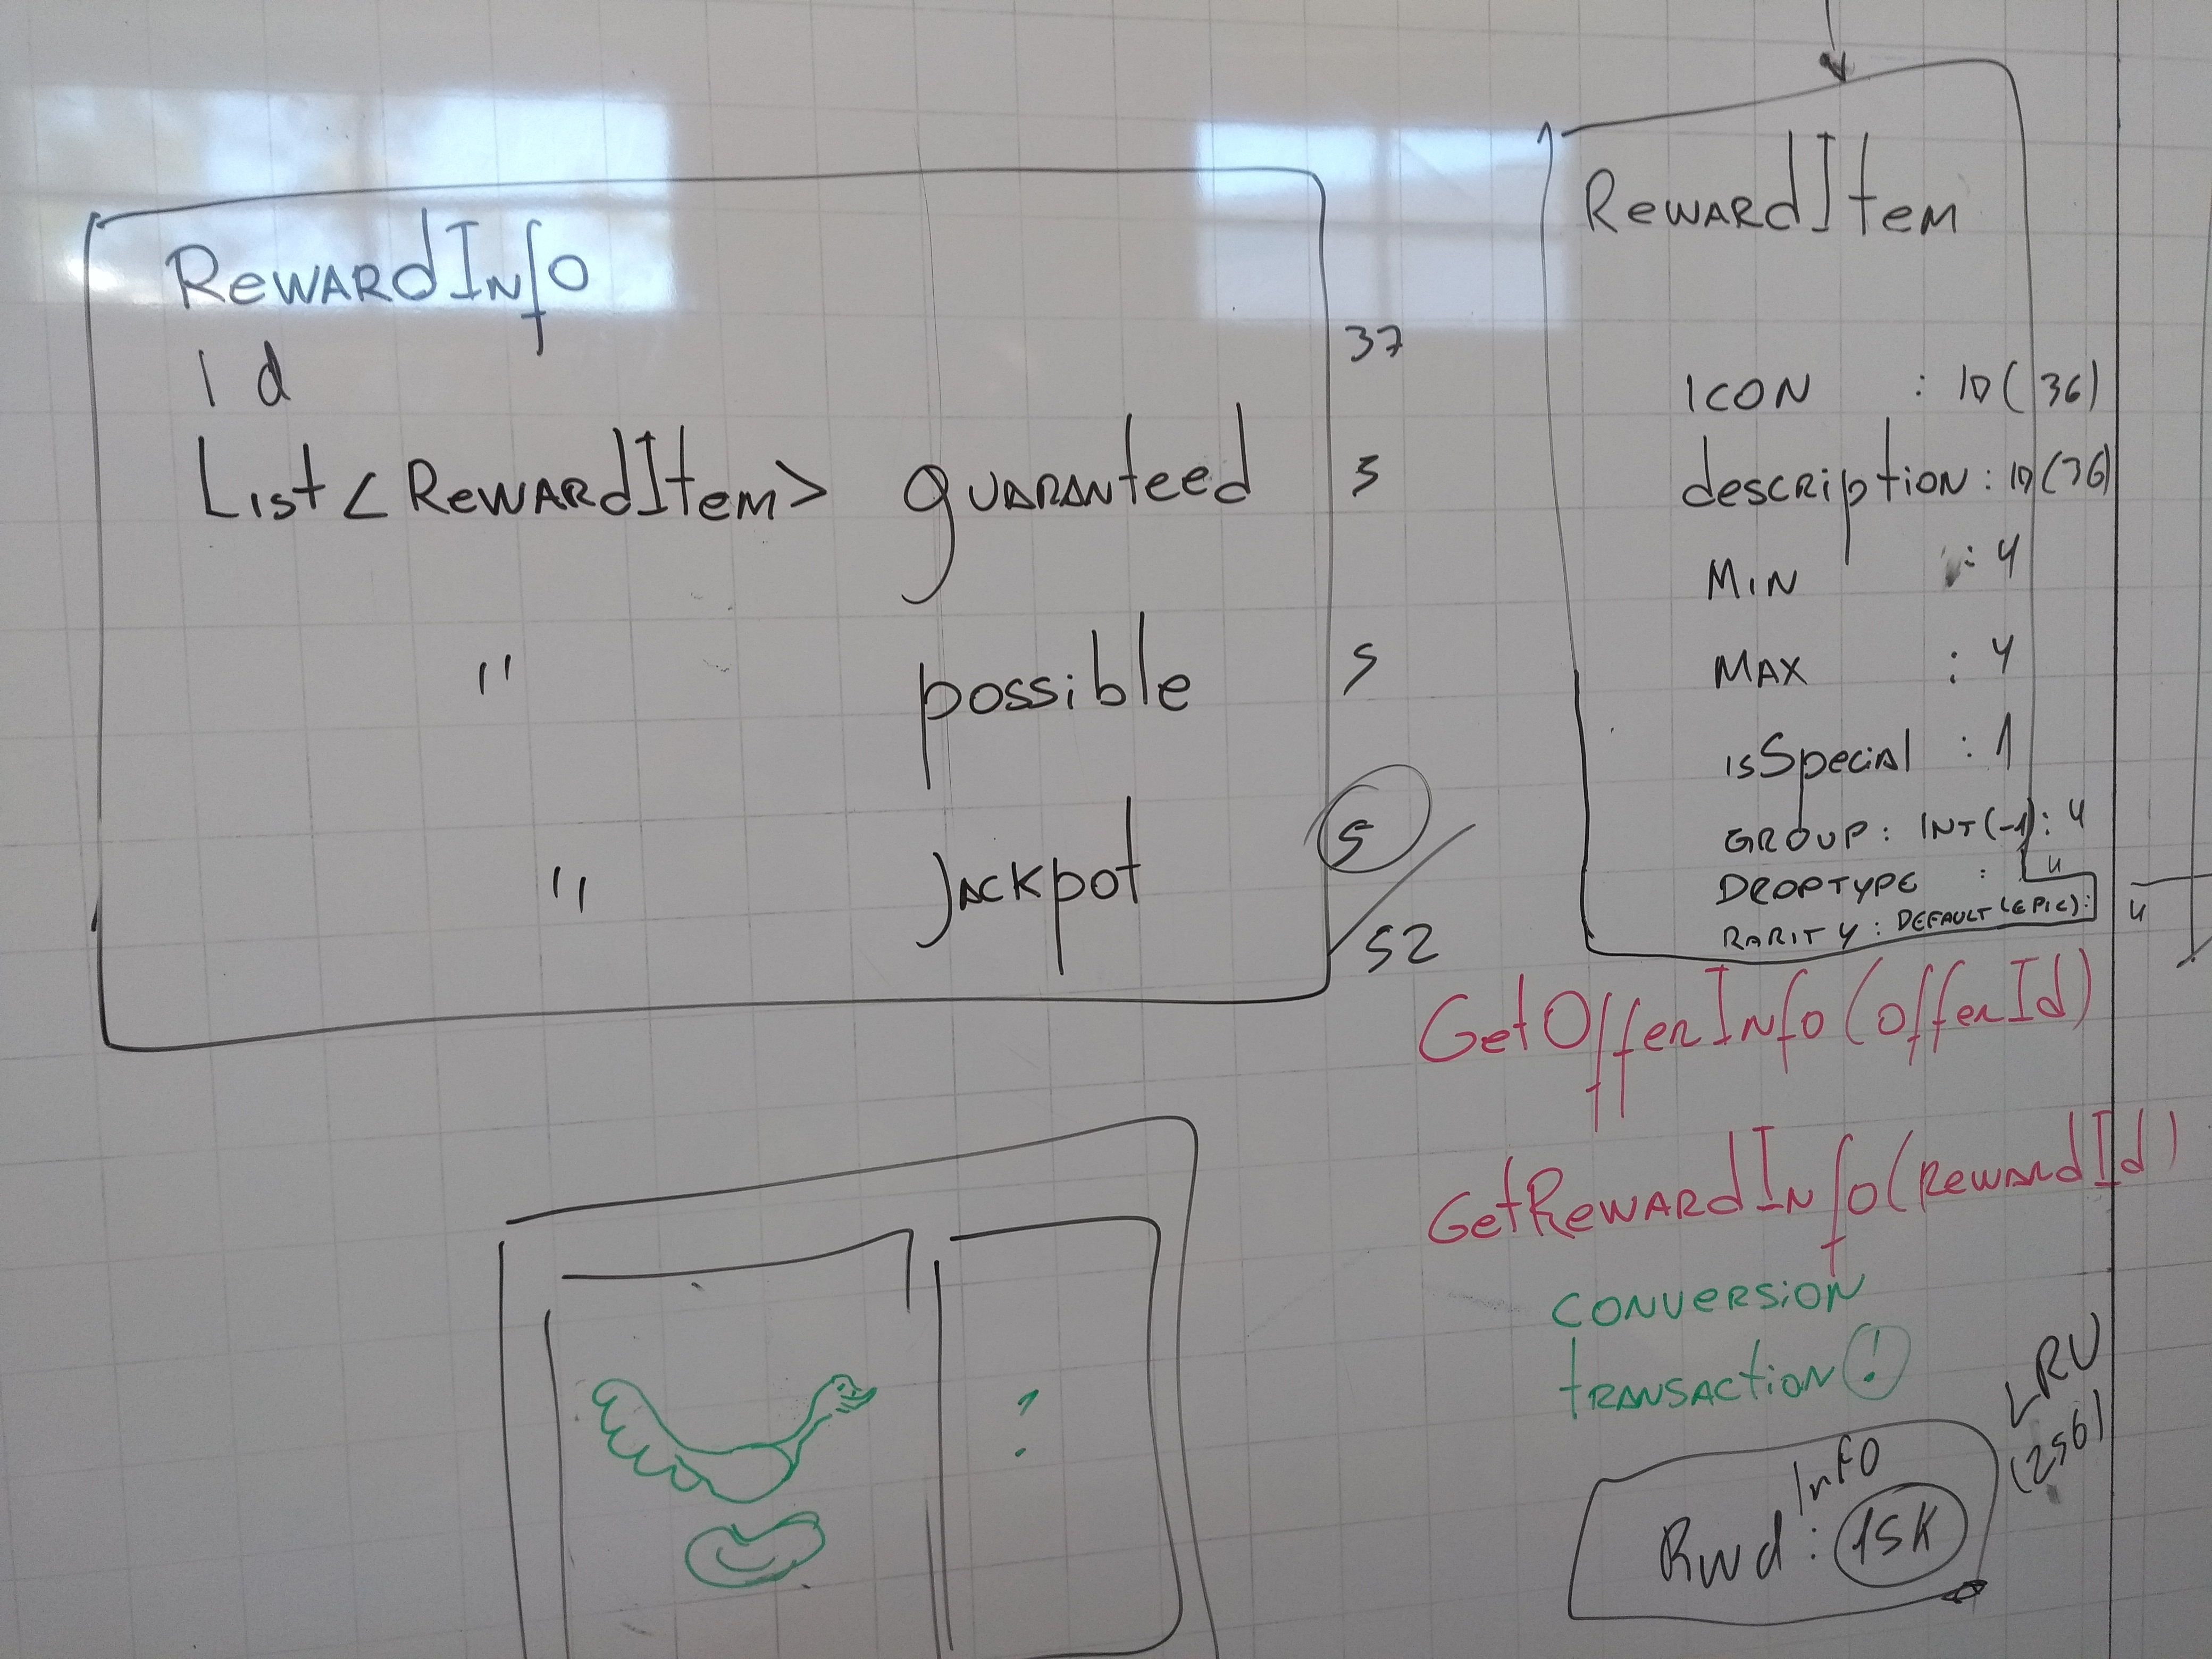 RewardInfo
id 37
List<RewardItem> guaranteed 5
" possible 5
" jackpot 5
52
RewardItem
icon : ID(36)
description : ID(36)
Min : 4
Max : 4
isSpecial : 1
GROUP : INT(-1) : 4
DROPTYPE : 4
RARITY : DEFAULT(EPIC) : 4
GetOfferInfo(offerId)
GetRewardInfo(rewardId)
conversion
transaction !
?
LRU
(256)
Info
Rwd : 15K